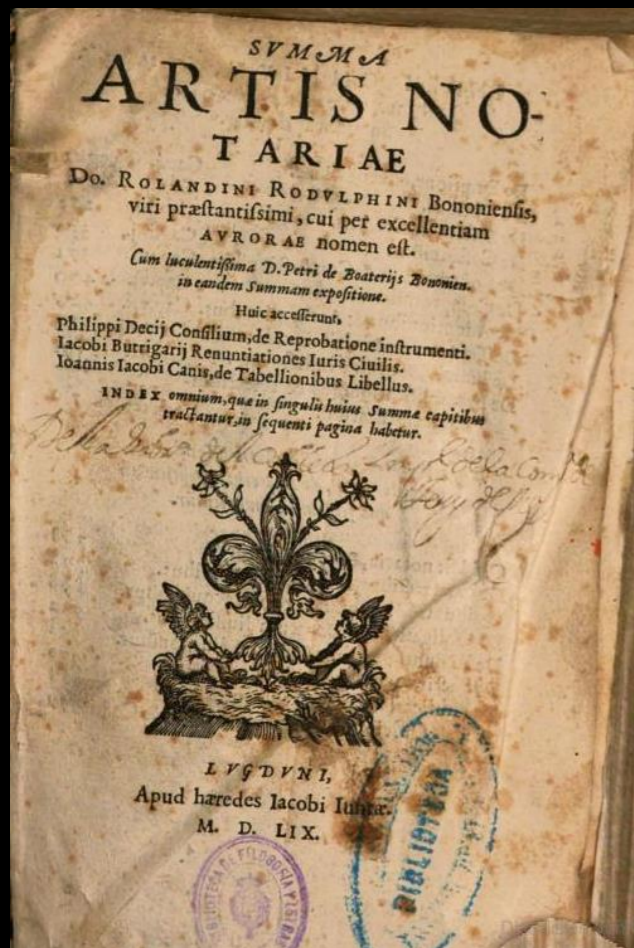 SVMMA
ARTIS NO-
TARIAE
Do. ROLANDINI RODVLPHINI Bononiensis,
viri præstantissimi, cui per excellentiam
AVRORAE nomen est.
Cum luculentissima D. Petri de Boaterijs Bononien.
in eandem Summam expositione.
Huic accesserunt,
Philippi Decij Consilium, de Reprobatione instrumenti.
Iacobi Buttrigarij Renuntiationes Iuris Ciuilis.
Ioannis Iacobi Canis, de Tabellionibus Libellus.
INDEX omnium, quæ in singulis huius Summæ capitibus
tractantur, in sequenti pagina habetur.
LVGDVNI,
Apud hæredes Iacobi Iuntæ.
M. D. LIX.
BIBLIOTECA DE FILOSOFIA Y LETRAS
BIBLIOTECA